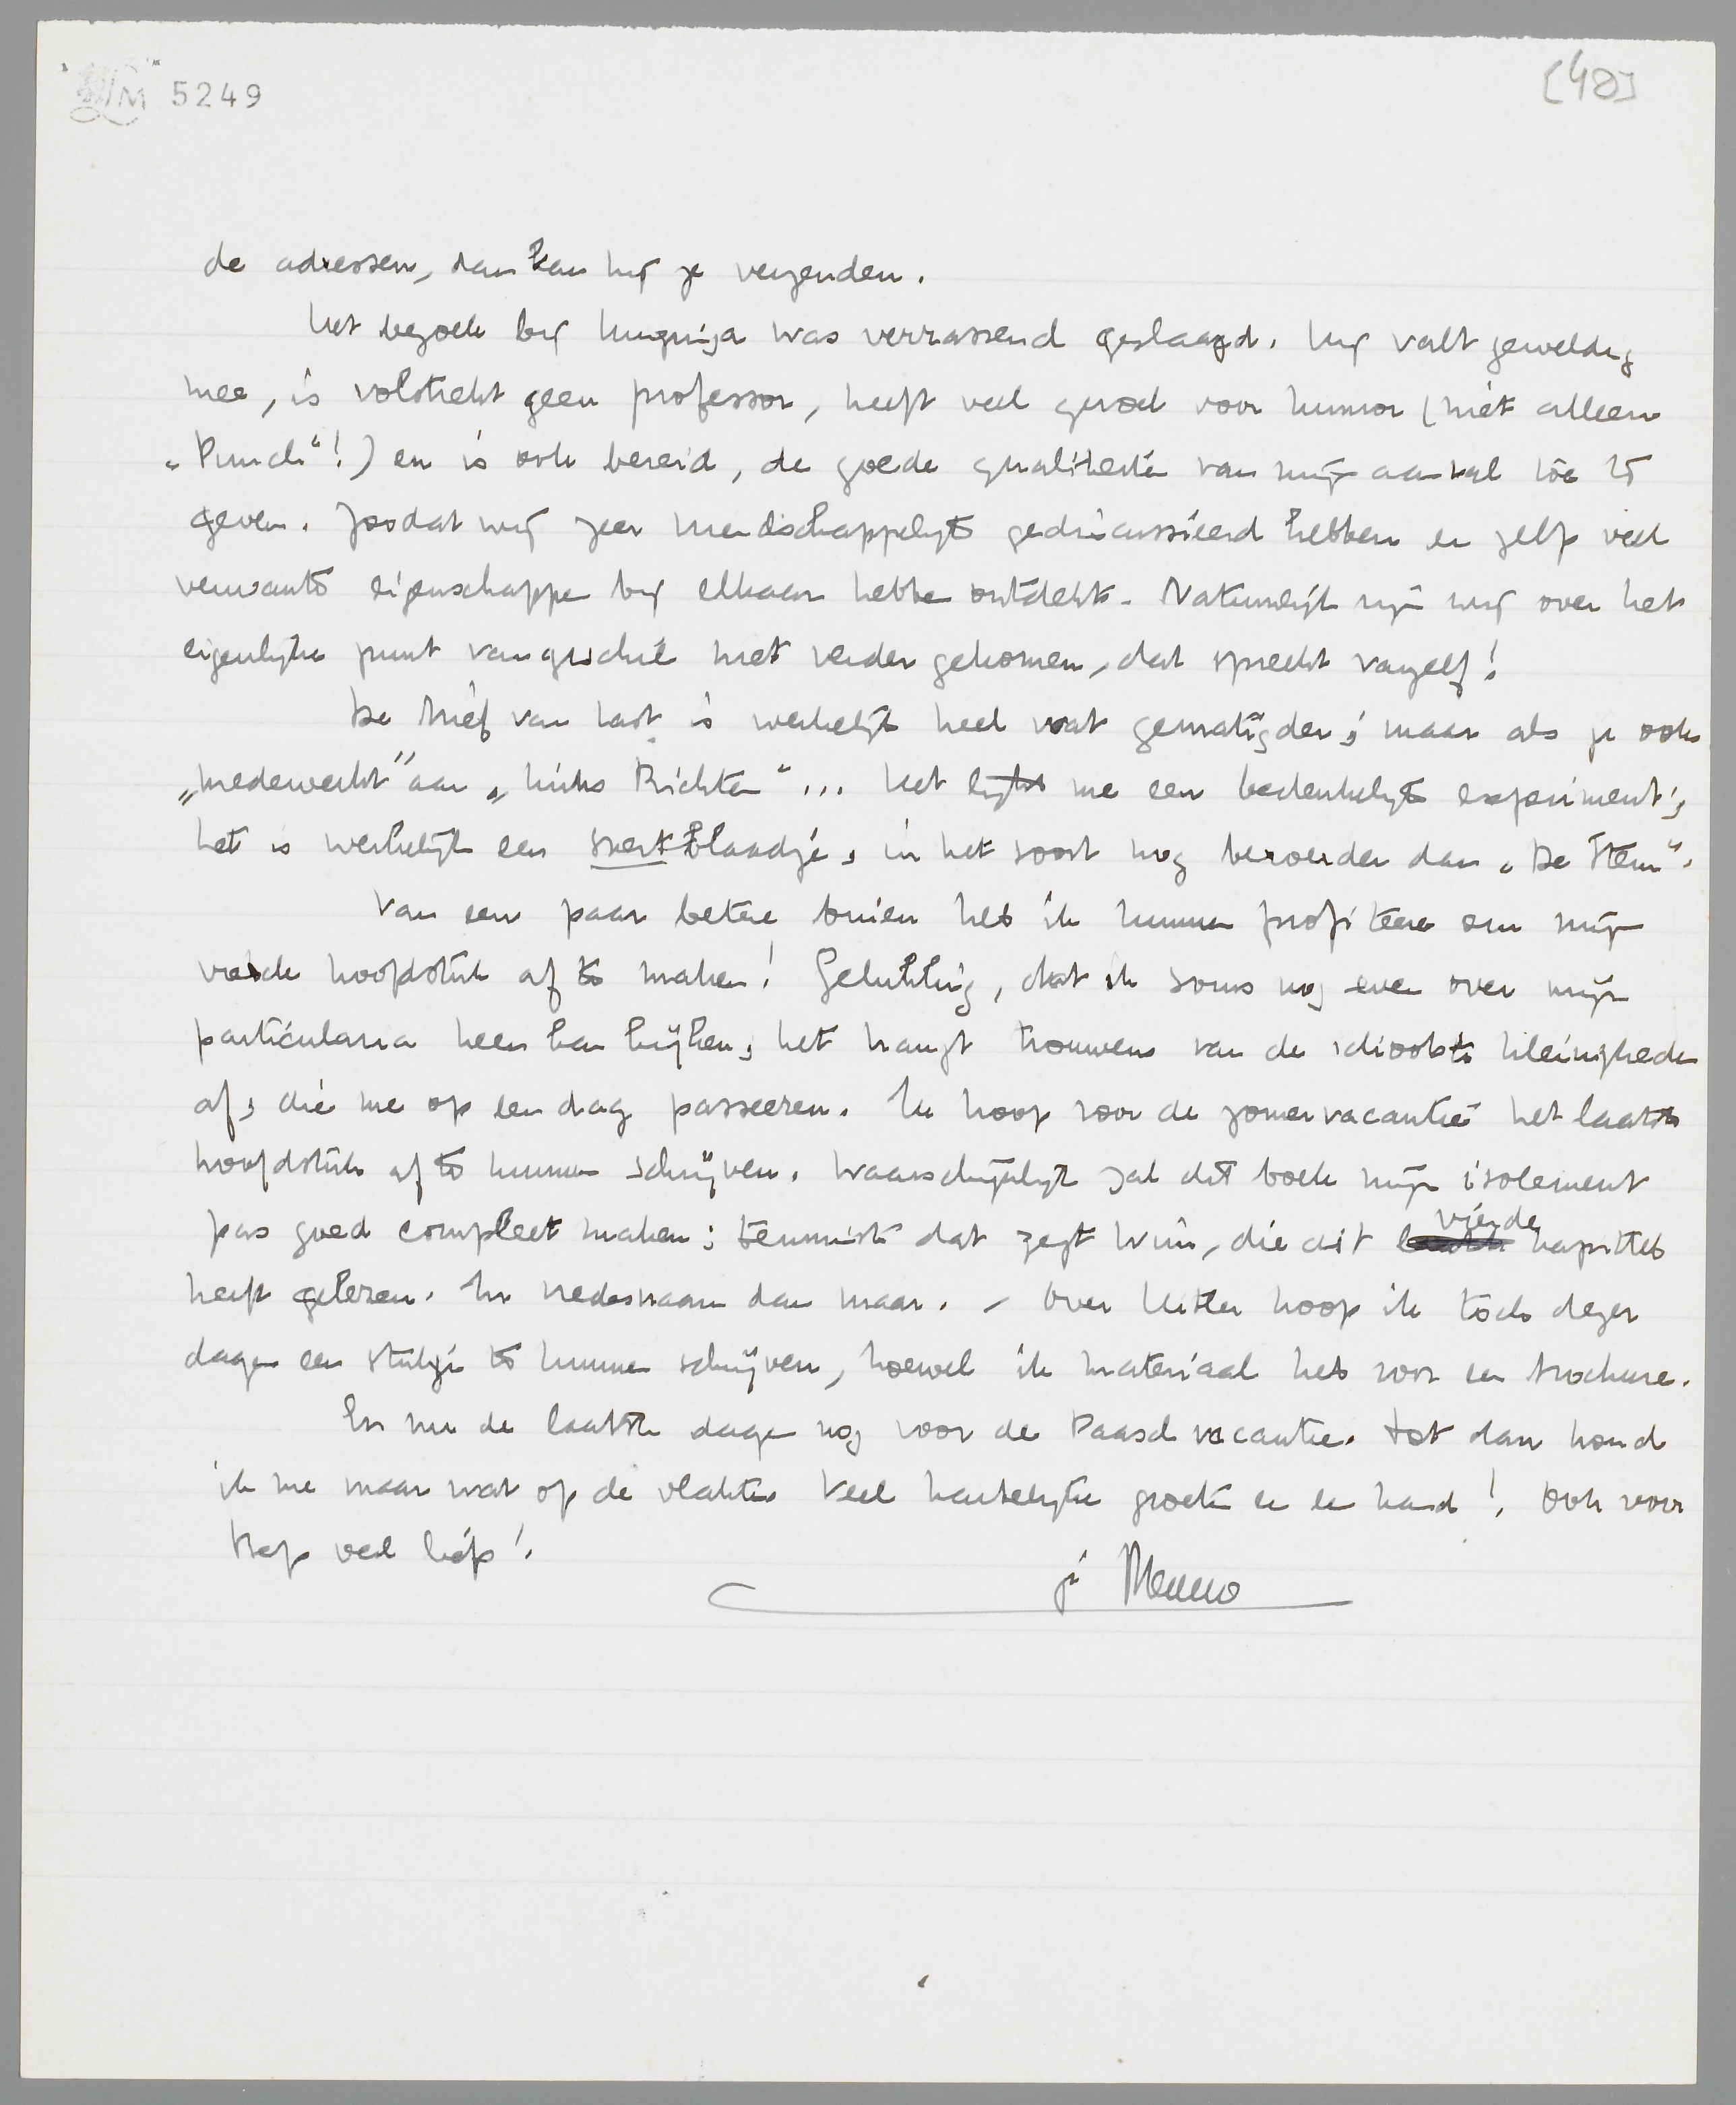 LM 5249
[48]
de adressen, dan kan hij ze verzenden.
Het bezoek bij Huizinga was verrassend geslaagd. Hij valt geweldig
mee, is volstrekt geen professor, heeft veel gevoel voor humor (niet alleen
„Punch"!) en is ook bereid, de goede qualiteiten van mijn aanval toe te
geven. Zoodat wij zeer vriendschappelijk gediscussieerd hebben en zelfs veel
verwante eigenschappen bij elkaar hebben ontdekt. Natuurlijk zijn wij over het
eigenlijke punt van geschil niet verder gekomen, dat spreekt vanzelf!
De brief van Last is werkelijk heel wat gematigder; maar als je ook
„medewerkt" aan „Links Richten"... Het lijkt me een bedenkelijk experiment;
het is werkelijk een snertblaadje, in het soort nog beroerder dan „De Stem".
Van een paar betere buien heb ik kunnen profiteeren om mijn
vierde hoofdstuk af te maken! Gelukkig, dat ik soms nog even over mijn
particularia heen kan kijken; het hangt trouwens van de idiootste kleinigheden
af, die me op een dag passeeren. Ik hoop voor de zomervacantie het laatste
hoofdstuk af te kunnen schrijven. Waarschijnlijk zal dit boek mijn isolement
pas goed compleet maken; tenminste dat zegt Wim, die dit vierde kapittel
heeft gelezen. In vredesnaam dan maar. – Over Hitler hoop ik toch dezer
dagen een stukje te kunnen schrijven, hoewel ik materiaal heb voor een brochure.
En nu de laatste dagen nog voor de Paaschvacantie. Tot dan houd
ik me maar wat op de vlakte. Veel hartelijke groeten en een hand! Ook voor
Bep veel liefs!
je Menno